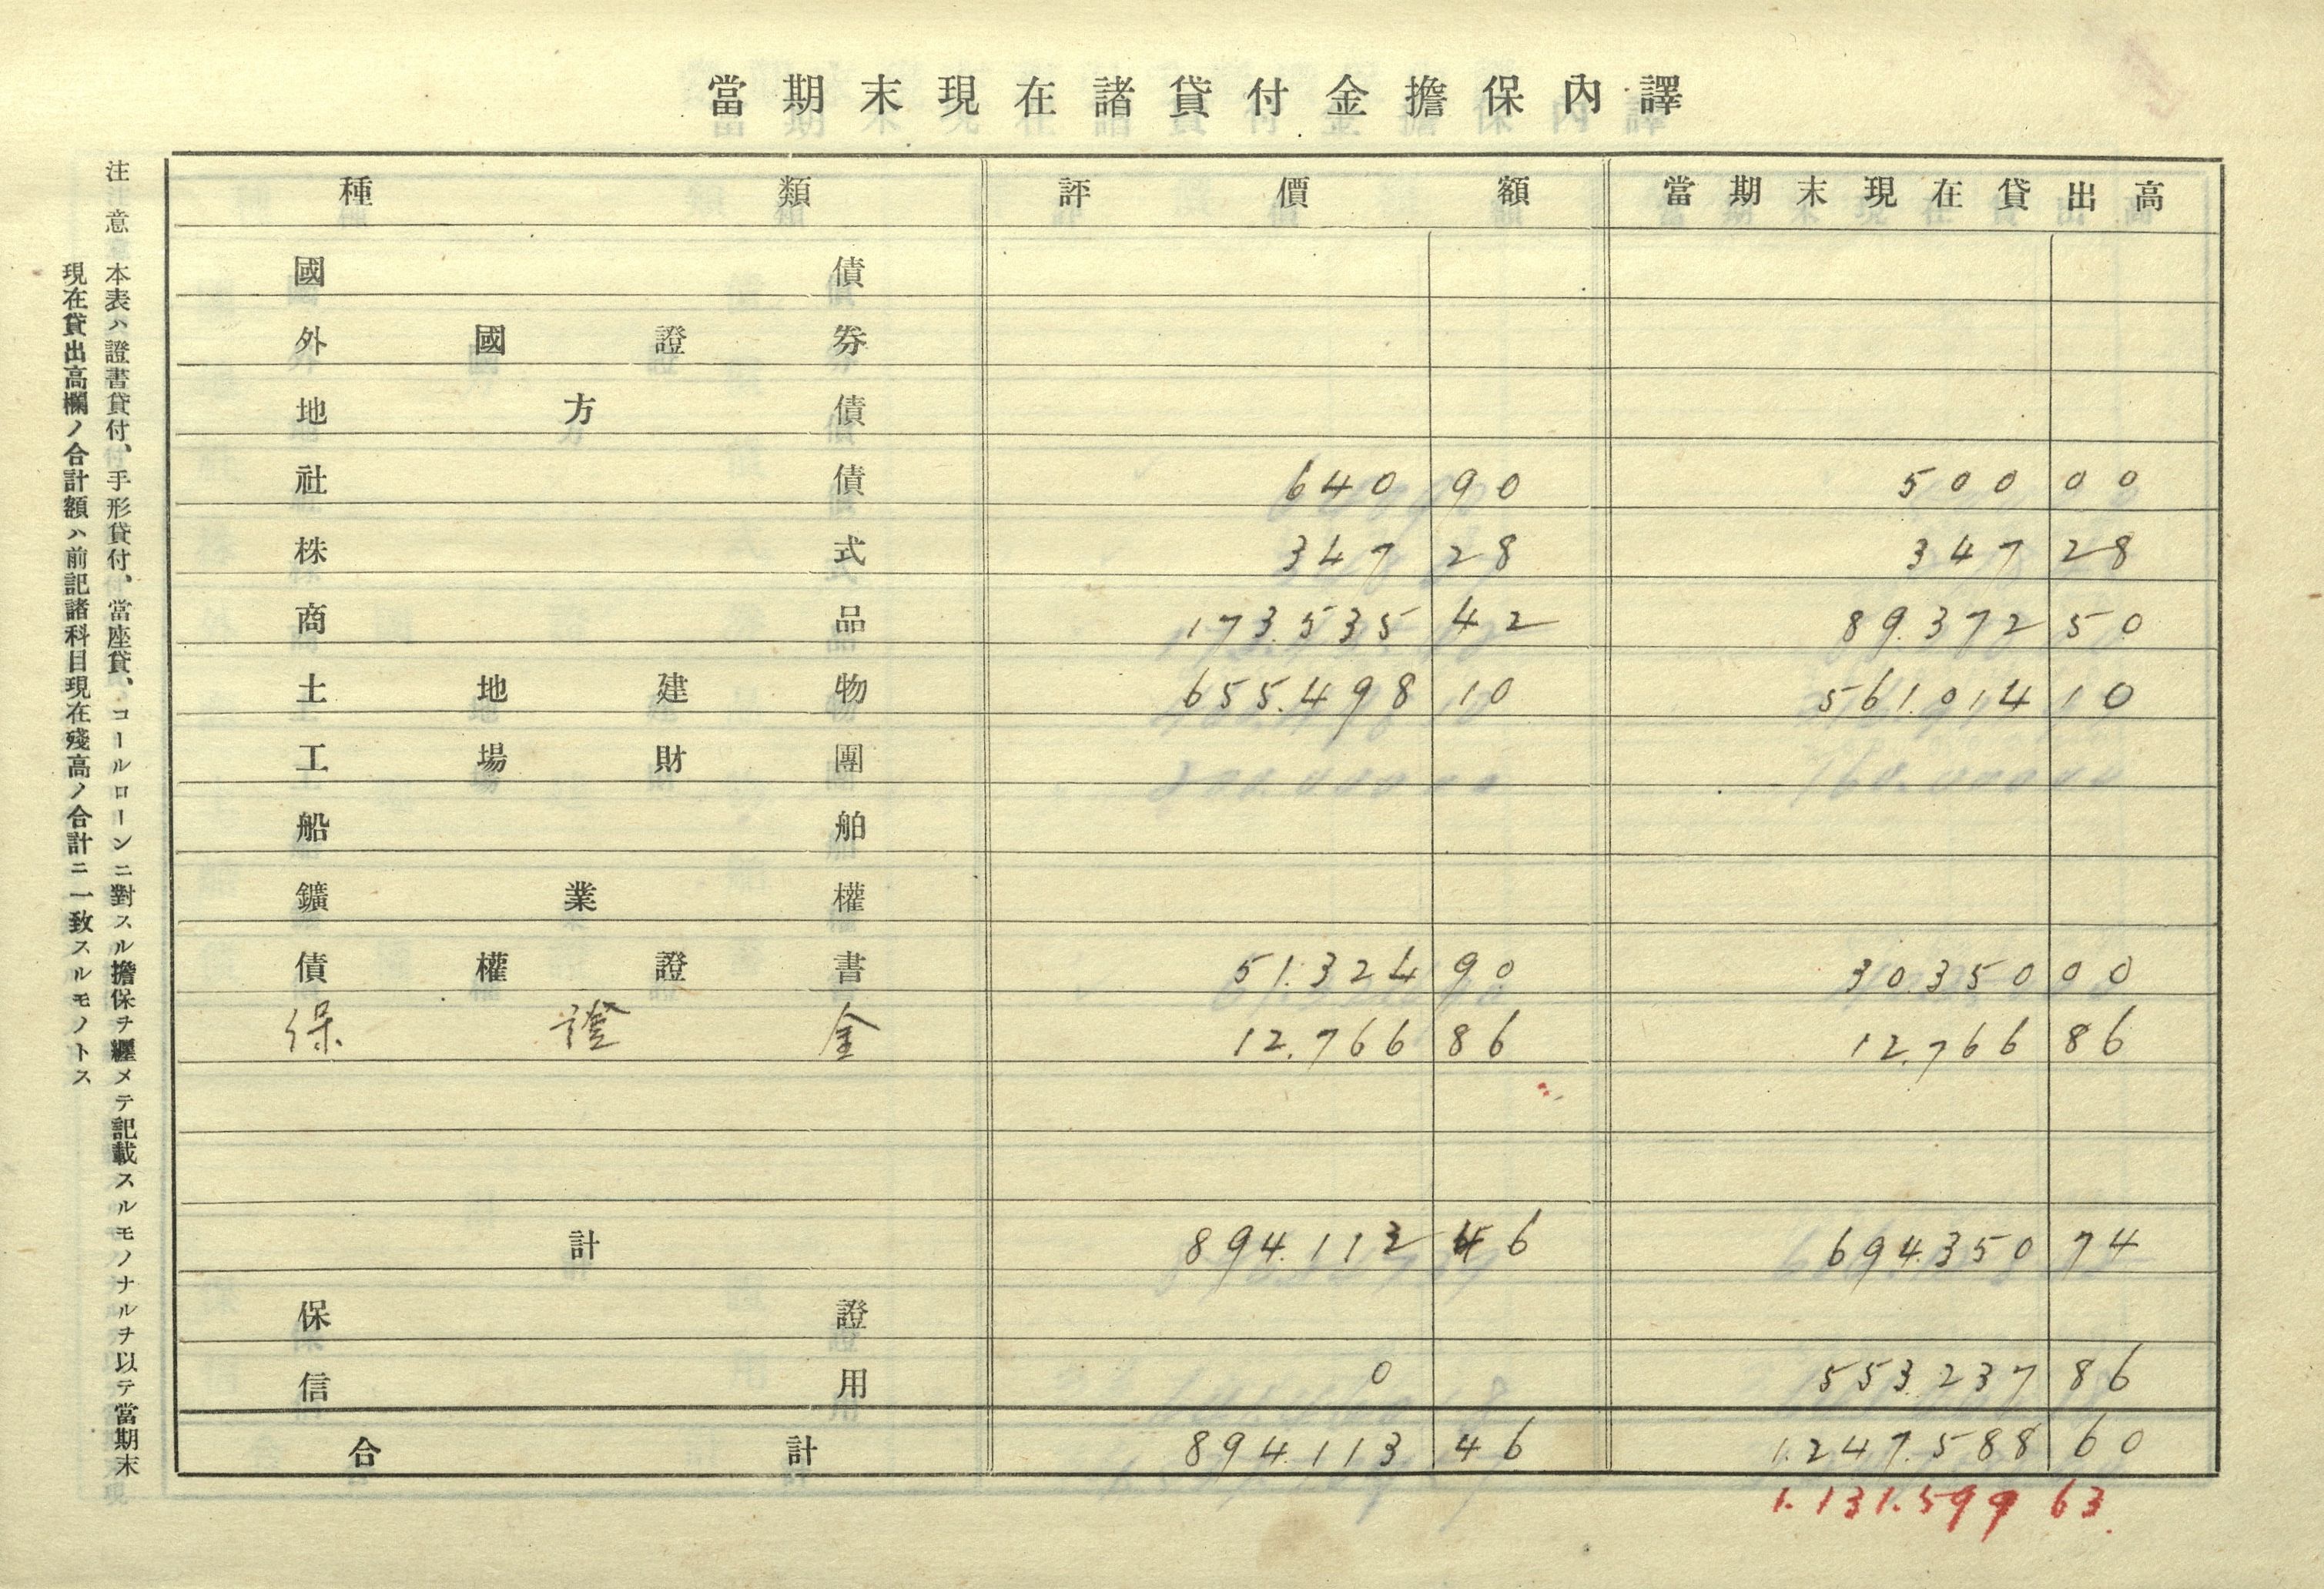 當期末現在諸貸付金擔保內譯
種類 評價額 當期末現在貸出高
國債
外國證券
地方債
社債 640 90 500 00
株式 347 28 347 28
商品 173.535 42 89.372 50
土地建物 655.498 10 561.014 10
工場財團
船舶
鑛業權
債權證書 51.324 90 30.350 00
保證金 12.766 86 12.766 86
計 894.113 46 694.350 74
保證
信用 0 553.237 86
合計 894.113 46 1.247.588 60
1.131.599 63.
注意 本表ハ證書貸付、手形貸付、當座貸、コールローンニ對スル擔保ヲ纒メテ記載スルモノナルヲ以テ當期末
現在貸出高欄ノ合計額ハ前記諸科目現在殘高ノ合計ニ一致スルモノトス